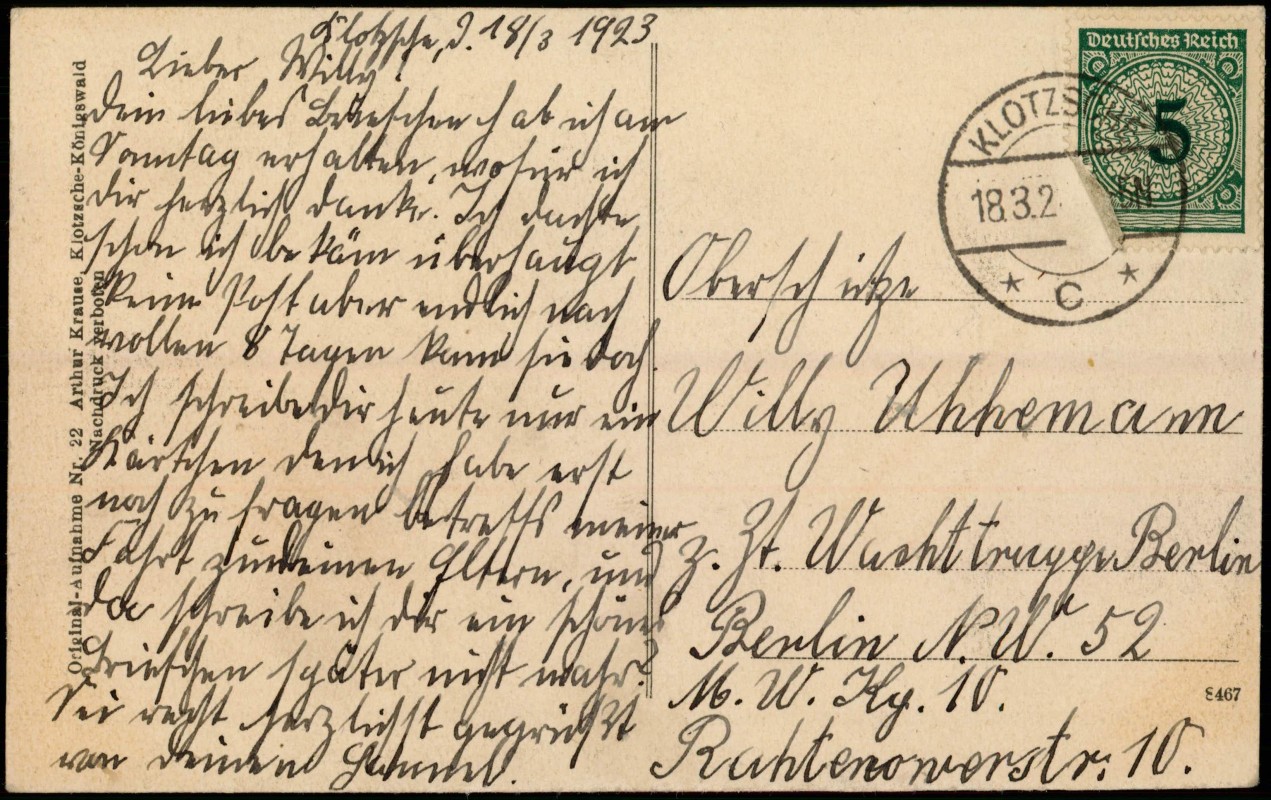 Klotzsche, d. 18/3 1923
Lieber Willy!
Dein liebes Briefchen hab ich am
Sonntag erhalten, wofür ich
dir herzlich danke. Ich dachte
schon ich bekäm überhaupt
keine Post aber endlich nach
vollen 8 Tagen kam sie doch.
Ich schreibe dir heute nur ein
Kärtchen den ich habe erst
noch zu fragen betreffs meiner
Fahrt zu deinen Eltern, und
da schreibe ich dir ein schönes
Briefchen später nicht wahr?
Sei recht herzlichst gegrüßt
von deinen
Original-Aufnahme Nr. 22 Arthur Krause, Klotzsche-Königswald
Nachdruck verboten
Deutsches Reich
5
KLOTZSCHE
18.3.2
5N
* C *
Oberschütze
Willy Uhhemann
z. Zt. Wachttruppe Berlin
Berlin N.W. 52
M. W. Kp. 10.
Rahtenowerstr. 10.
8467